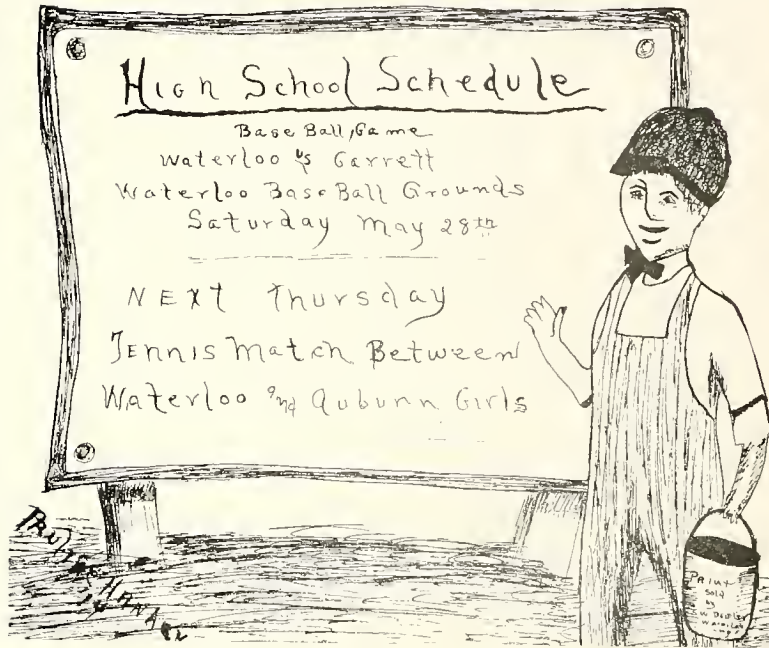 High School Schedule
Base Ball Game
Waterloo vs Garrett
Waterloo Base Ball Grounds
Saturday May 28th
Next Thursday
Tennis Match Between
Waterloo and Auburn Girls
Paint
Sold
by